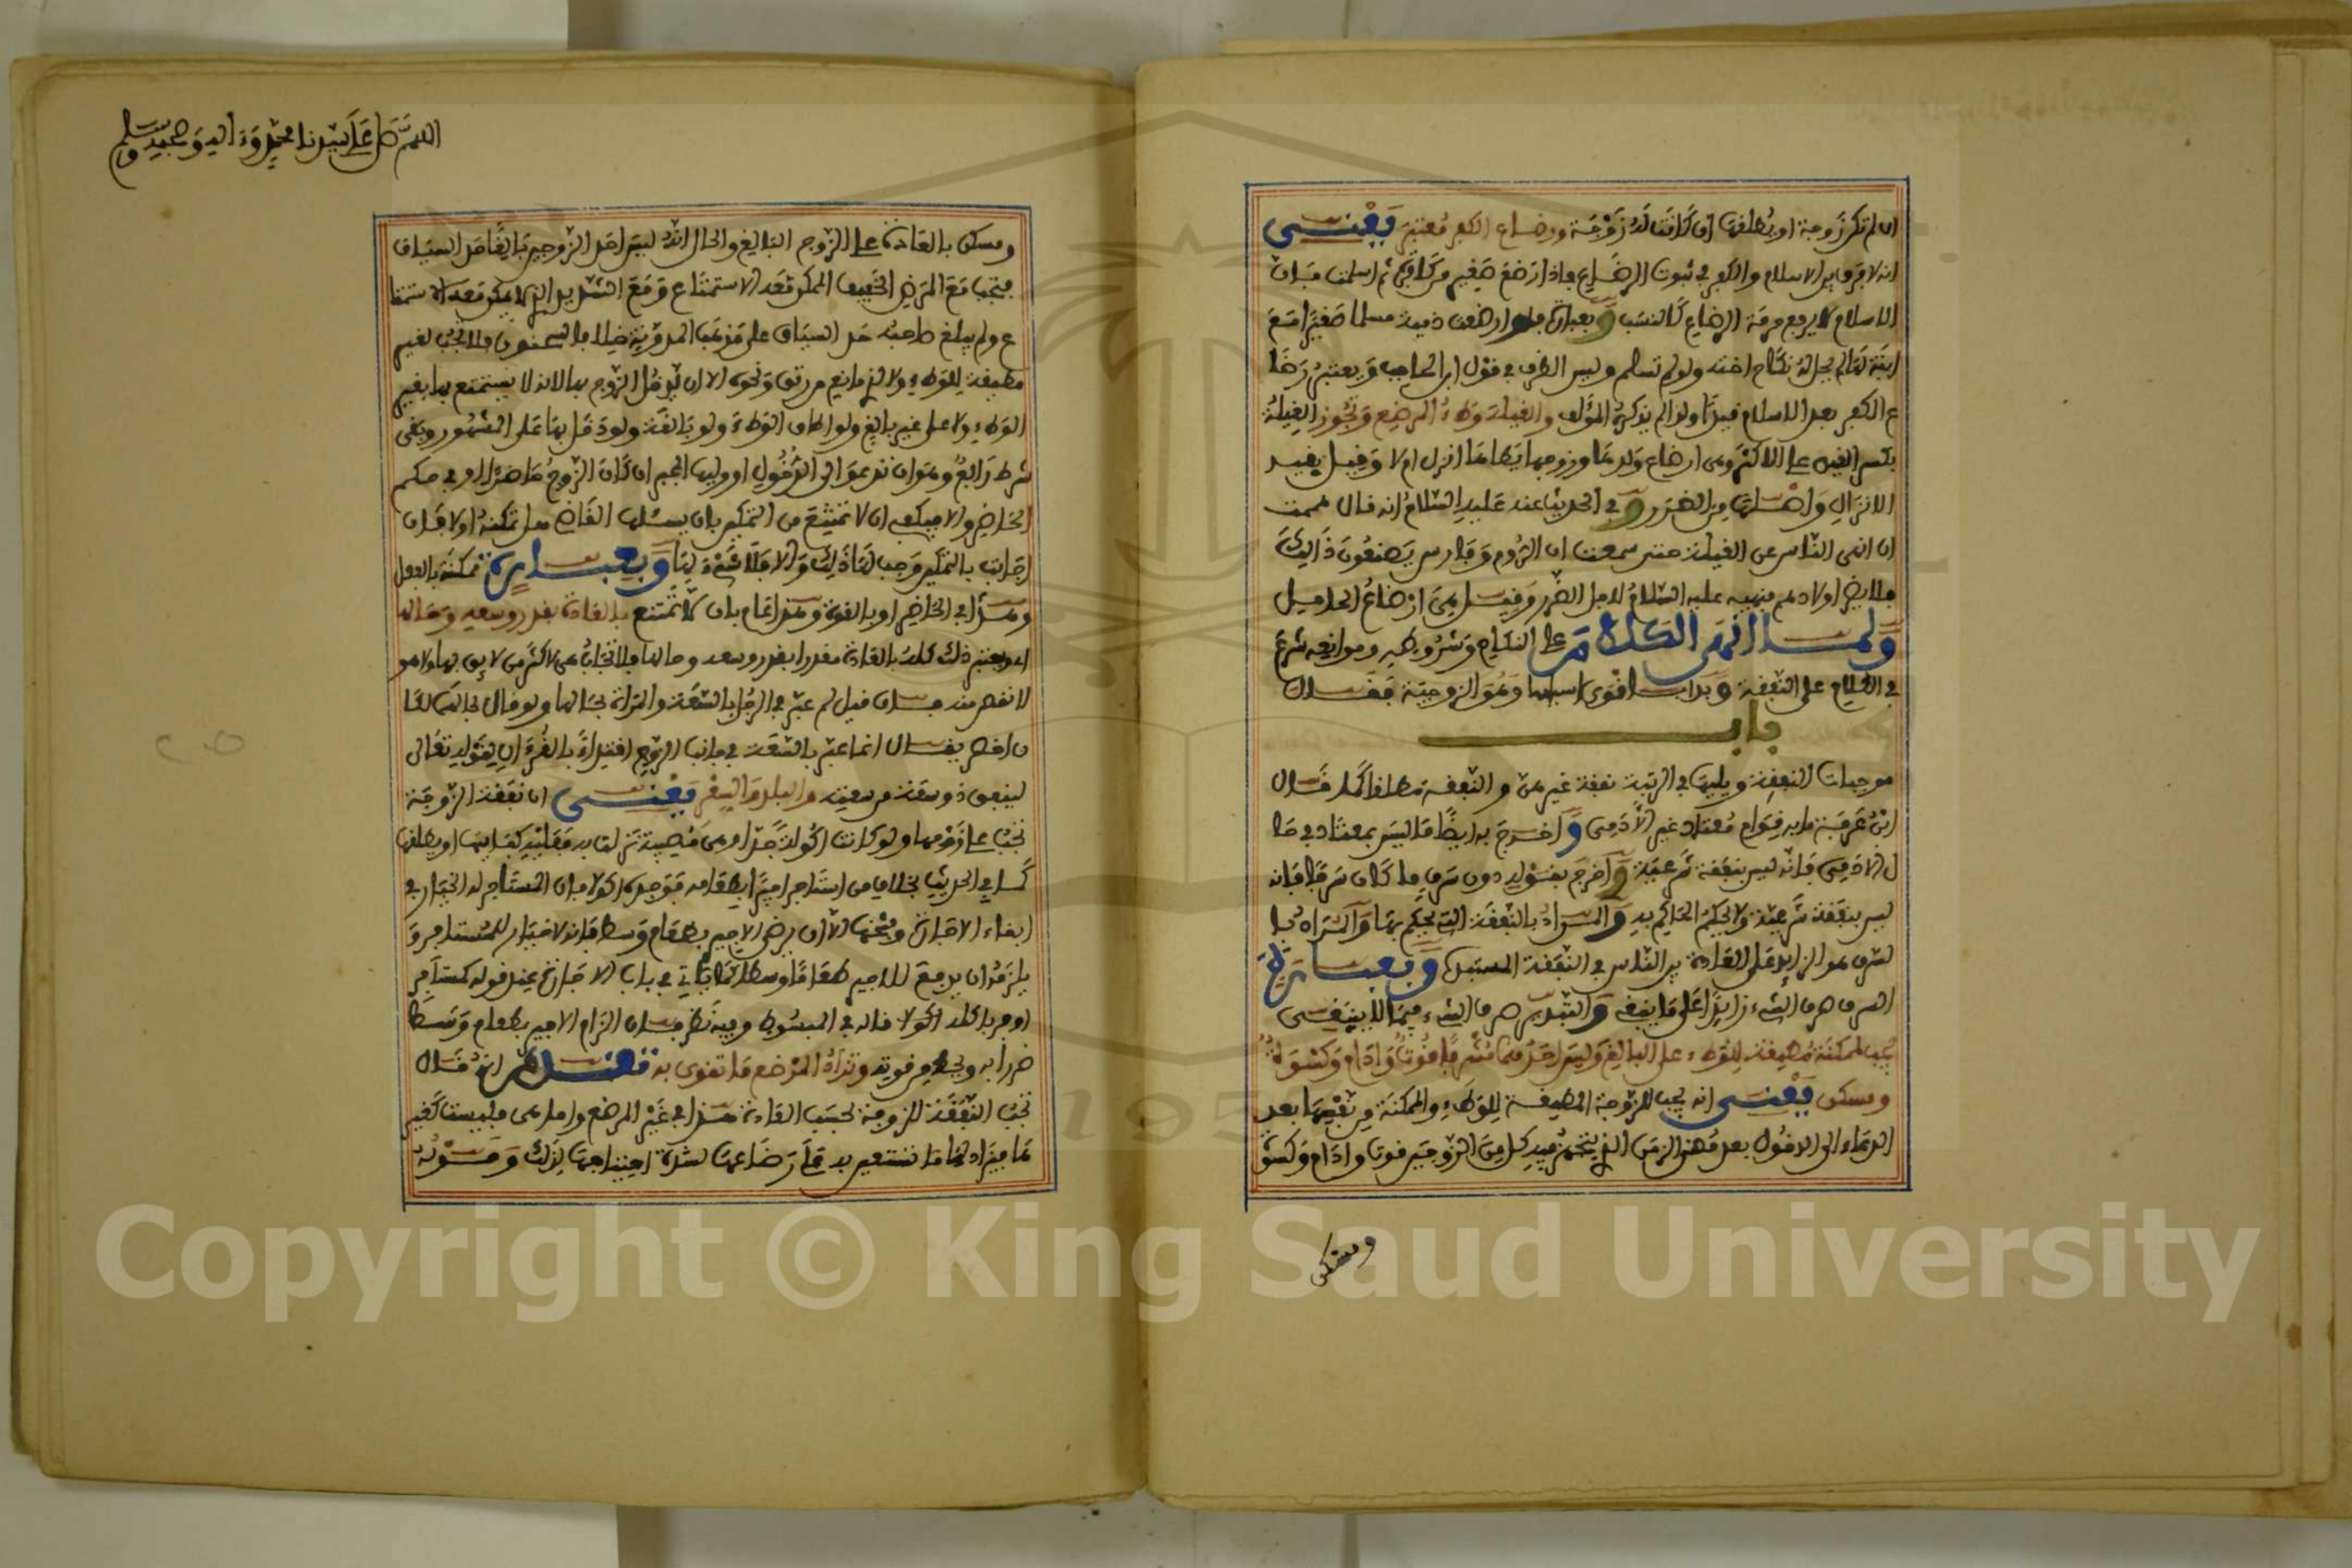 ان لم تكن زوجة او يطلقها ان كانت له زوجة ورضاع الكفر معتبر يعنى
انه لا فرق بين الاسلام والكفر في ثبوت الرضاع فاذا ارضع صغير من كافرة ثم اسلمت فان
الاسلام لا يرفع حرمة الرضاع كالنسب وبعبارة فلو ارضعت ذمية مسلما صغيرا مع
ابنة لها لم يحل له نكاح اخته ولو لم تسلم وليس الظرف في قول ابن الحاجب ويعتبر رضا
ع الكفر بعد الاسلام قيدا ولذا لم يذكره المؤلف والغيلة وطء المرضع وتجوز الغيلة
بكسر الغين على الاكثر وهى ارضاع ولدها وزوجها يطاها انزل ام لا وقيل بقيد
الانزال واصلها من الضرر و في الحديث عنه عليه السلام انه قال هممت
ان انهى الناس عن الغيلة حتى سمعت ان الروم وفارس يصنعون ذالك
فلا يضر اولادهم فنهيه عليه السلام لاجل الضرر وقيل هى ارضاع الحامل
ولمـا انهى الكلام على النكاح وشروطه وموانعه شرع
في الكلام على النفقة وبدا باقوى اسبابها وهو الزوجية فقال
باب
موجبات النفقة ويليها في الرتبة نفقة غيرهن والنفقة مطلقا كما قال
ابن عرفة ما به قوام معتاد غير الآدمى و اخرج به ايضا ما ليس بمعتاد في حا
ل الادمى فانه ليس بنفقة شرعية و اخرج بقوله دون سرف ما كان سرفا فانه
ليس بنفقة شرعية ولا يحكم الحاكم به والمراد بالنفقة التى يحكم بها والمراد با
لسرف هو الزايد على العادة بين الناس في النفقة المستهلك وبعبارة
السرف صرف الشىء زايدا على ما ينبغى والتبذير صرف الشىء فيما لا ينبغى
يجب لممكنة مطيقة للوطء على البالغ وليس احدهما مشرفا قوت وادام وكسوة
ومسكن يعنى انه يجب للزوجة المطيقة للوطء والممكنة من نفسها بعد
الدعاء الى الدخول بعد مضى الزمن الذى يتجهز فيه كل من الزوجين قوت وادام وكسوة
ومسكن
اللهم صل على سيدنا محمد وءاله وصحبه وسلم
ومسكن بالعادة على الزوج البالغ والحال انه ليس احد الزوجين بالغا حد السياق
فيجب مع المرض الخفيف الممكن معه الاستمتاع ومع الشديد الذى لا يمكن معه الاستمتا
ع ولم يبلغ صاحبه حد السياق على مذهب المدونة خلافا لسحنون فلا تجب لغير
مطيقة للوطء ولا لذى مانع من رتق ونحوه الا ان يدخل الزوج بها لانه لا يستمتع بها بغير
الوطء ولا على غير بالغ ولو اطاق الوطء ولو بالغة ولو دخل بها على المشهور وبقى
شرط رابع وهو ان تدعو الى الدخول او وليها المجبر ان كان الزوج حاضرا او في حكم
الحاضر والا فيكفى ان لا تمتنع من التمكين بان يسئلها القاضى هل تمكنه او لا فان
اجابت بالتمكين وجب لها ذلك والا فلا شىء لها وبعبارة ممكنة بالفعل
وهذا في الحاضر او بالقوة وهذا عام بان لا تمتنع بالعادة بقدر وسعه وحالها
اى ويعتبر ذلك كله بالعادة مقدرا بقدر وسعه وحالها فلا تجاب هى لاكثر من لايق بها ولا هو
لانقص منه فان قيل لم عبر في الرجل بالسعة والمراة بحالها ولو قال بحالهما لكا
ن اخصر يقال انما عبر بالسعة في جانب الزوج اقتداء بالقرءان لقوله تعالى
لينفق ذو سعة من سعته والبلد والسفر يعنى ان نفقة الزوجة
تجب على زوجها ولو كانت اكولة جدا وهى مصيبة نزلت به فعليه كفايتها او يطلقها
كما في الحديث بخلاف من استاجر اجيرا بطعامه فوجده اكولا فان المستاجر له الخيار في
ابقاء الاجارة وفسخها الا ان يرضى الاجير بطعام وسط فانه لا خيار للمستاجر و
يلزمه ان يدفع للاجير طعاما وسطا كما ياتى في باب الاجارة عند قوله كمستاجر
اوجر باكله اكولا قاله في المبسوط وفيه نظر فان الزام الاجير بطعام وسط
ضررا به وبحط من قوته وتزاد المرضع ما تقوى به تقدم انه قال
تجب النفقة للزوجة بحسب العادة هذا في غير المرضع واما هى فليست كغير
ها فيزاد لها ما تستعين به على رضاعها لشدة احتياجها لذلك وقوله